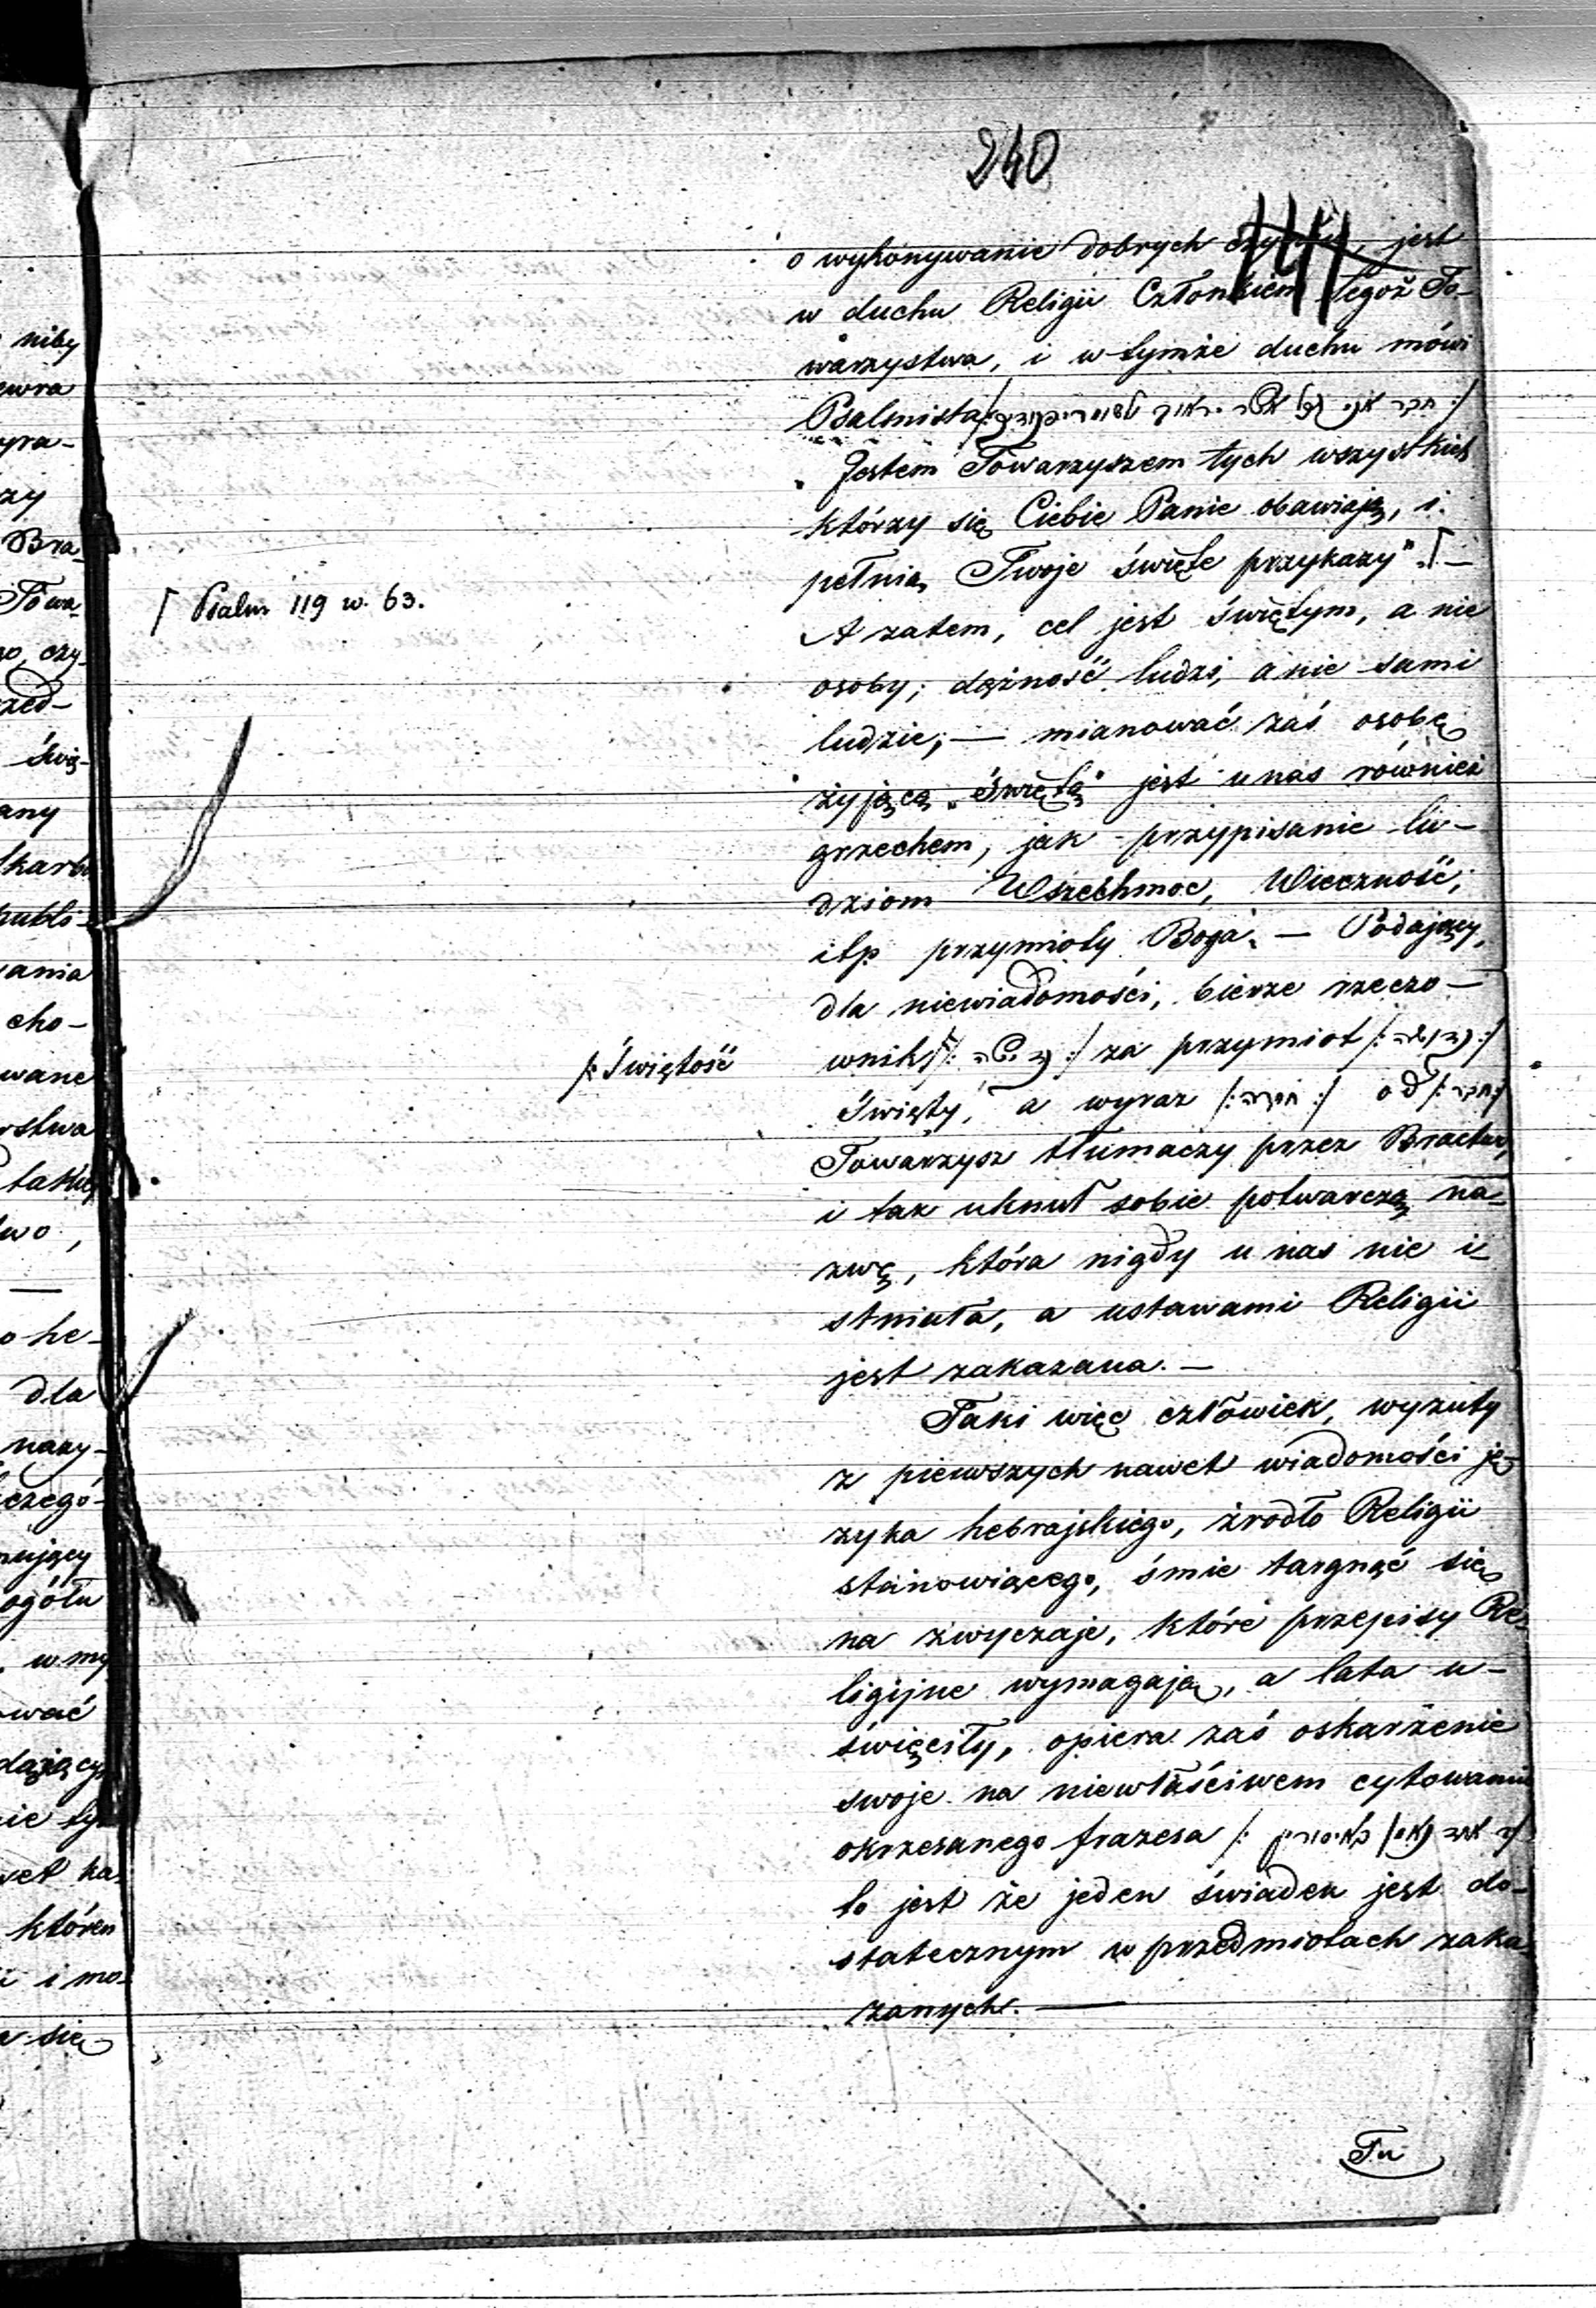 240
o wykonywanie dobrych jest
w duchu Religii Członkiem tegoż To-
warzystwa, i w tymże duchu mówi
Psalmista /: חבר אני לכל אשר יראוך ולשומרי פקודיך :/
„Jestem Towarzyszem tych wszystkich
którzy się Ciebie Panie obawiają, i
pełnią Twoje święte przykazy”. ⌈ —
⌈ Psalm 119 w. 63.
A zatem, cel jest świętym, a nie
osoby; dążność ludzi, a nie sami
ludzie; — mianować zaś osobę
żyjącą „świętą” jest u nas również
grzechem, jak przypisanie lu-
dziom Wszechmoc, Wieczność,
itp przymioty Boga. — Podający,
dla niewiadomości, bierze rzeczo-
wnik /: קדושה :/ za przymiot /: קדושה :/
/: Świętość
Święty, a wyraz /: חברה :/ od /: חבר :/
Towarzysz tłumaczy przez Bractwo,
i tak uknuł sobie potwarczą na-
zwę, która nigdy u nas nie i-
stniała, a ustawami Religii
jest zakazana. —
Taki więc człowiek, wyzuty
z pierwszych nawet wiadomości ję-
zyka hebrajskiego, źrodło Religii
stanowiącego, śmie targnąć się
na zwyczaje, które przepisy Re-
ligijne wymagają, a lata u-
święciły, opiera zaś oskarżenie
swoje na niewłaściwem cytowaniu
okrzesanego frazesa /: עד אחד נאמן באיסורין
to jest że jeden świadek jest do-
statecznym w przedmiotach zaka-
zanych. —
Tu
niby
ewra
yra-
zy
Bra-
Towa-
czy-
rzed-
świę-
any
skarb
publi-
ania
cho-
wane
rstwa
takie
wo,
—
o he-
dla
nazy-
czegó-
ujący
ogółu
w my
ować
dążący
nie ty
wet ka
któren
i mo-
się